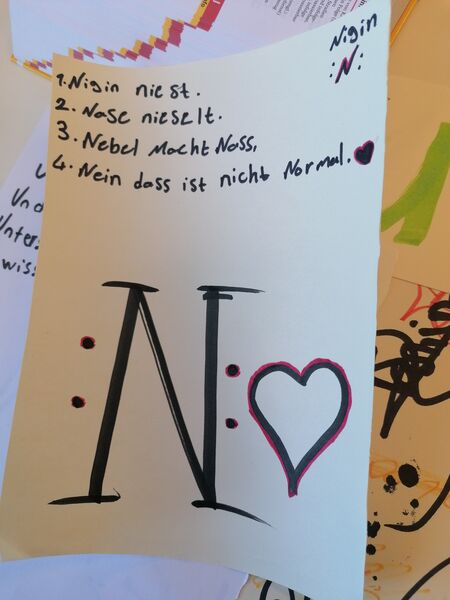 Nigin
:N:
1. Nigin niest.
2. Nase nieselt.
3. Nebel Macht Nass,
4. Nein dass ist nicht Normal.
:N:
Und
Unter
wis